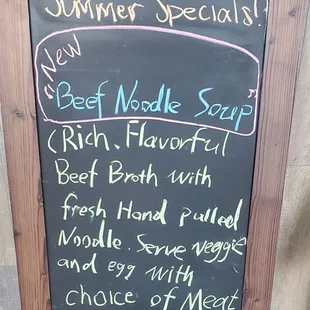 Summer Specials!
"New"
Beef Noodle Soup
(Rich. Flavorful
Beef Broth with
fresh Hand pulled
Noodle. Serve veggie
and egg with
choice of Meat